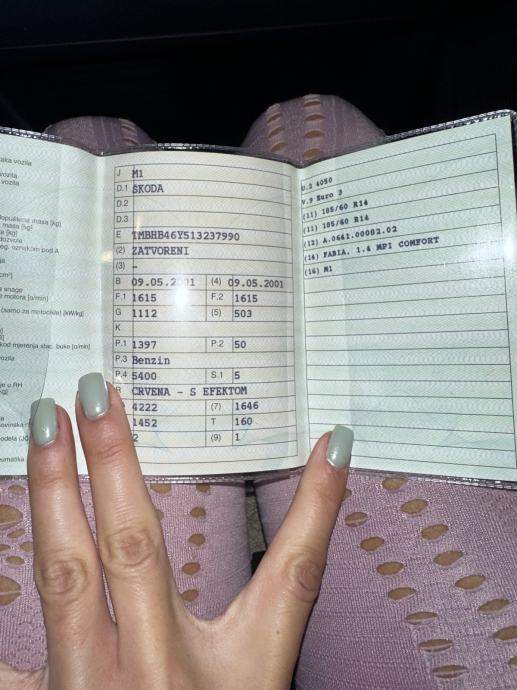 aka vozila
vozila
dopuštena masa [kg]
masa [kg]
a [kg]
dozvole
eg. oznakom pod A
cm³]
a snage
e motora [o/min]
(samo za motocikle) [kW/kg]
kod mjerenja stac. buke [o/min]
vozila
je u RH
J M1
D.1 ŠKODA
D.2
D.3
E TMBHB46Y513237990
(2) ZATVORENI
(3) –
B 09.05.2001 (4) 09.05.2001
F.1 1615 F.2 1615
G 1112 (5) 503
K
P.1 1397 P.2 50
P.3 Benzin
P.4 5400 S.1 5
R CRVENA - S EFEKTOM
4222 (7) 1646
1452 T 160
2 (9) 1
U.2 4050
V.9 Euro 3
(11) 185/60 R14
(11) 185/60 R14
(12) A.0641.00082.02
(14) FABIA. 1.4 MPI COMFORT
(16) M1